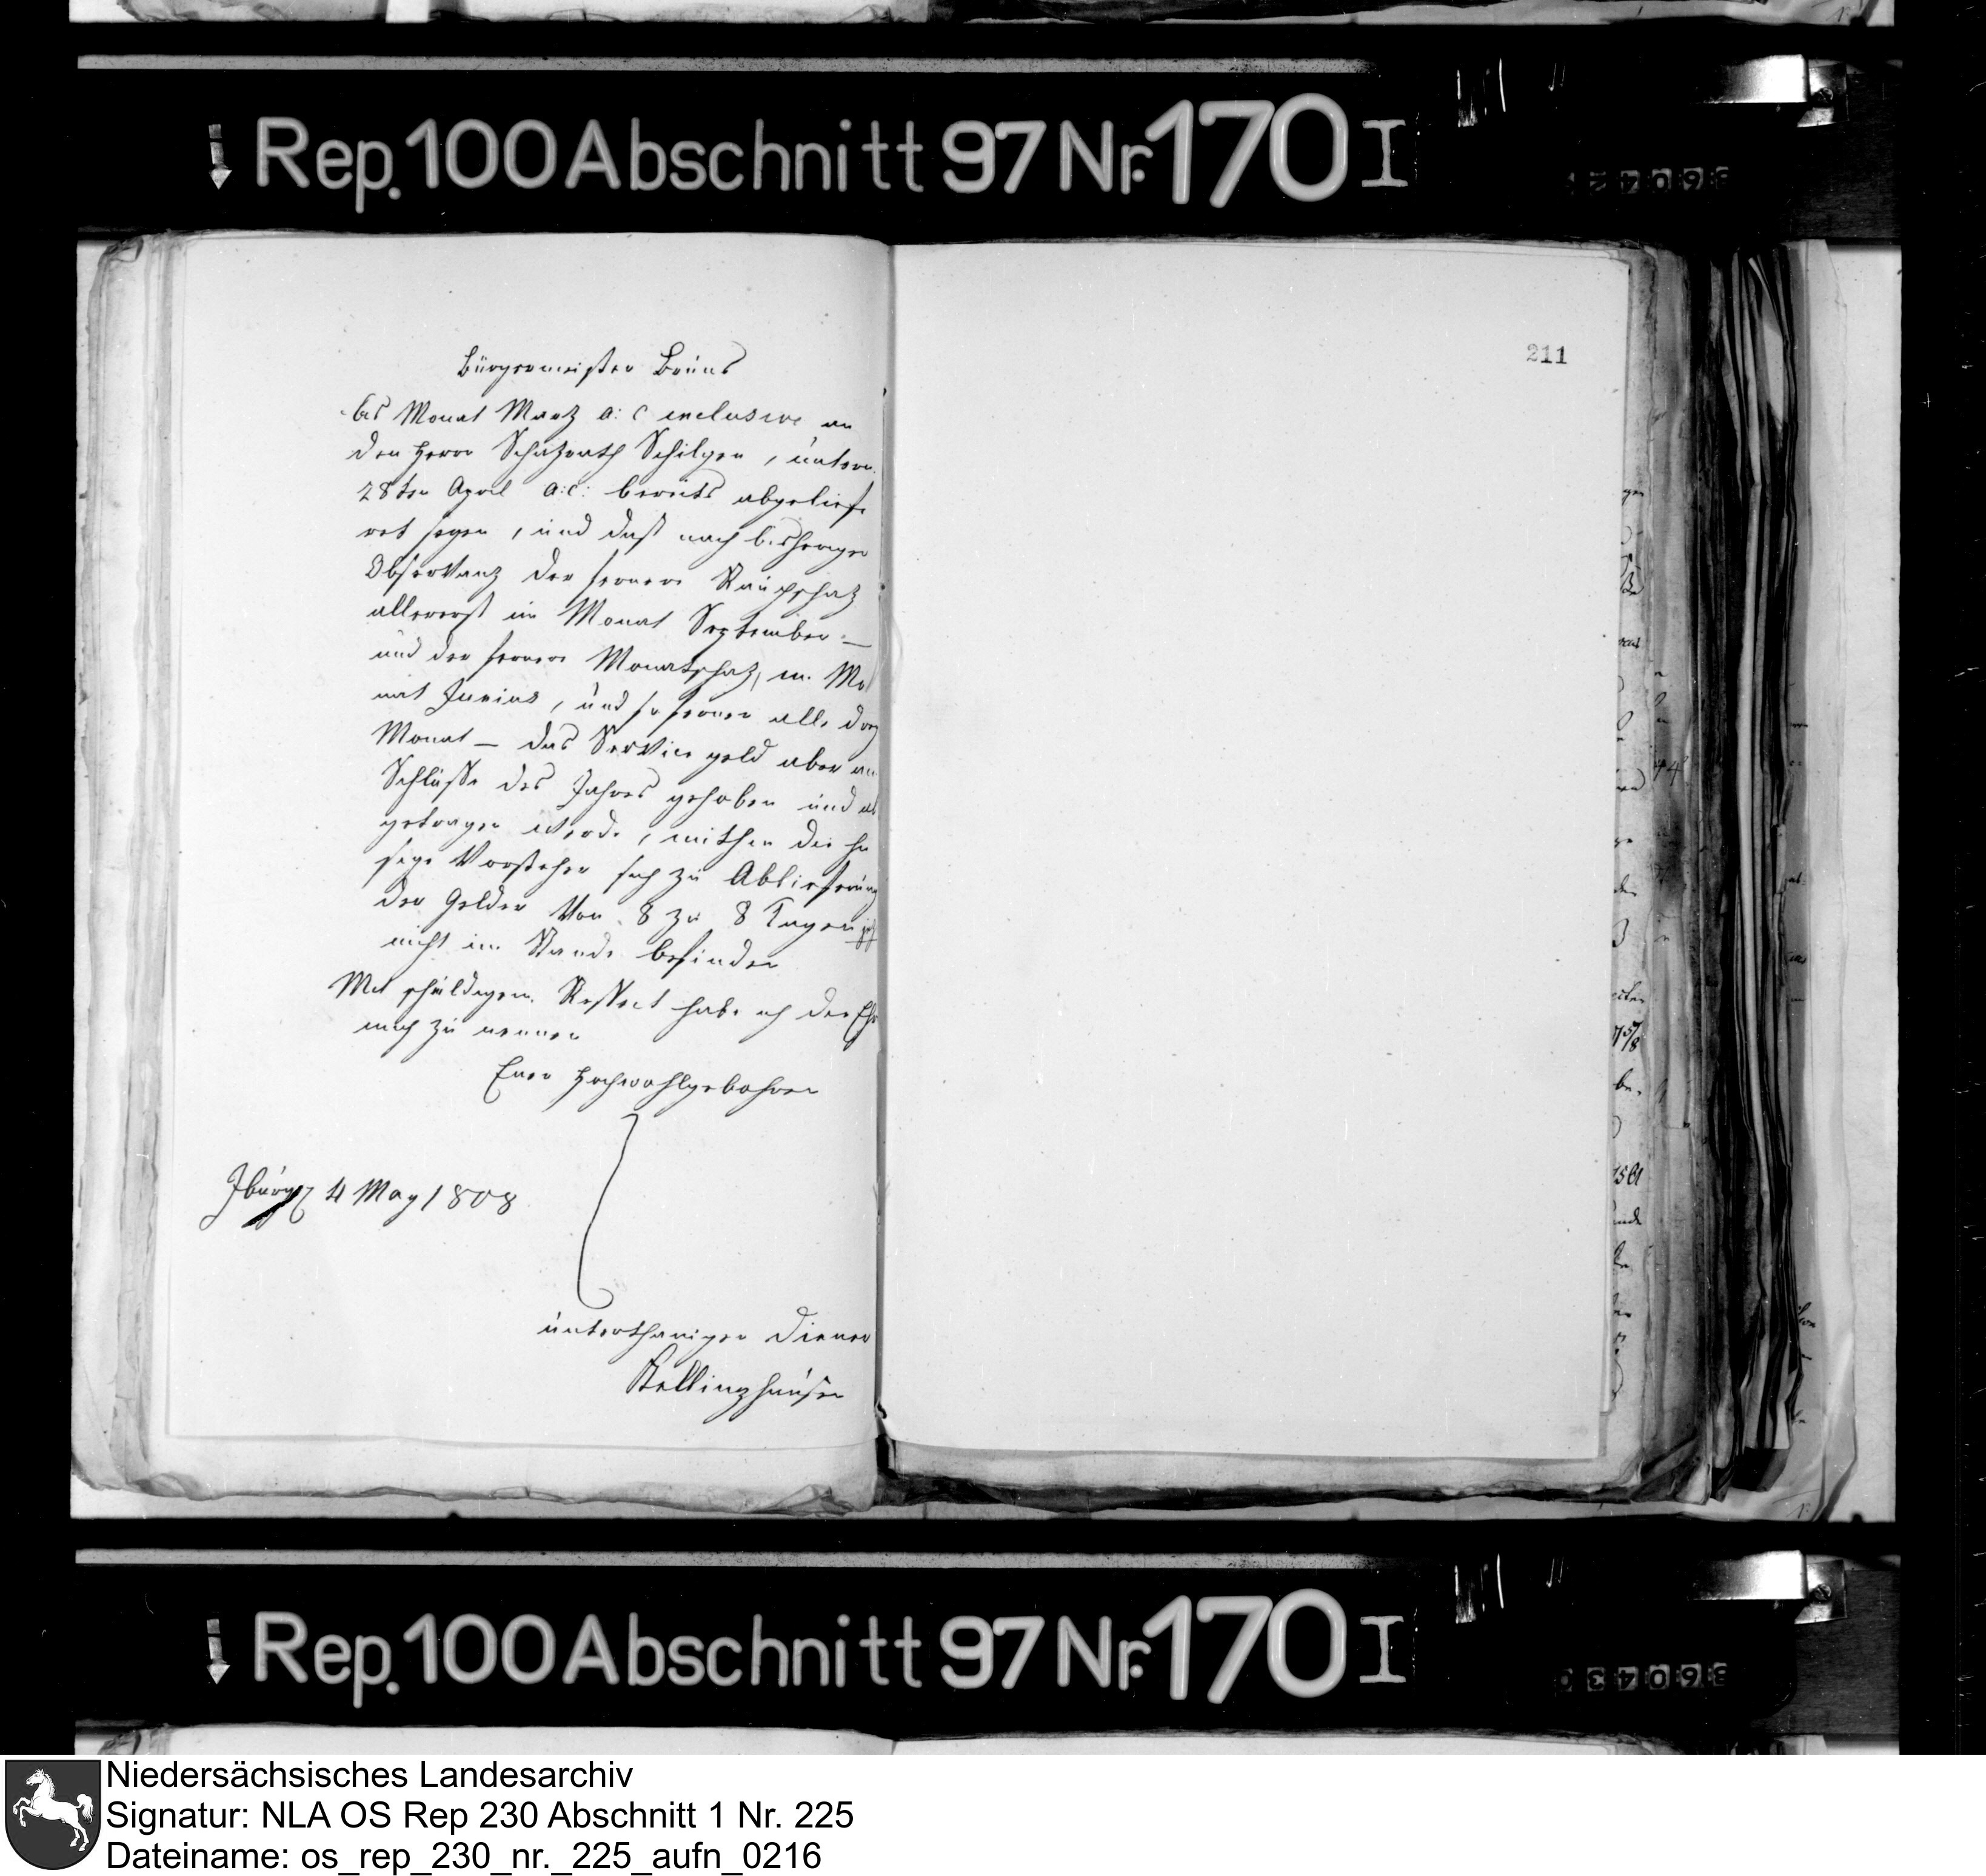 Rep. 100 Abschnitt 97 Nr. 170 I
211
Bürgermeister Brüns
bis Monat Martz a: c inclusive an
den Herrn Schatzrath Schilgen, unterm
28ten April a: c: bereits abgelief
ret seyen, und daß nach bisheriger
Observanz der fernere Rauchschatz
allererst im Monat September –
und der fernere Monatschatz, im Mo
nat Junius, und so ferner alle drey
Monat – das Service geld aber am
Schlusse des Jahres gehoben und ab
getragen werde, mithin die hie
sige Vorsteher sich zu Ablieferung
der Gelder von 8 zu 8 Tagen
nicht im Stande befinden
Mit schuldigem Respect habe ich die Ehre
mich zu nennen
Euer Hochwohlgebohren
Iburg 4 May 1808
unterthäniger Diener
Stellinghausen
Rep. 100 Abschnitt 97 Nr. 170 I
Niedersächsisches Landesarchiv
Signatur: NLA OS Rep 230 Abschnitt 1 Nr. 225
Dateiname: os_rep_230_nr._225_aufn_0216